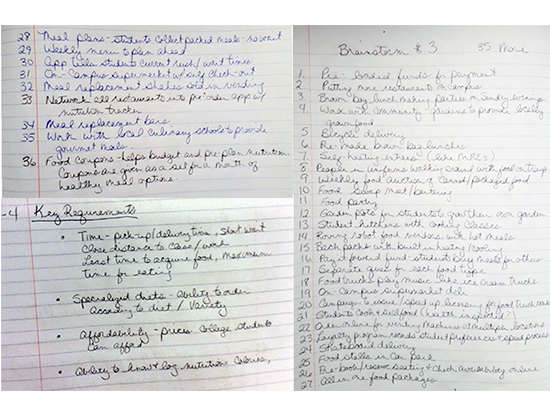 28 Meal plans - students collect packed meals - no wait
29 Weekly menu to plan ahead
30 App tells students current rush/wait times
31 On-Campus supermarket w/ self check-out
32 Meal replacement shakes sold in vending
33 Network all restaurants into pre order app w/
nutrition tracker
34 Meal replacement bars
35 Work with local culinary schools to provide
gourmet meals.
36 Food Coupons - helps budget and pre-plan nutrition
Coupons are given as a set for a month of
healthy meal options.
-4 Key Requirements
• Time - pick-up/delivery time, short wait
Close distance to class/work
Least time to acquire food, maximum
time for eating
• Specialized diets - ability to order
According to diet / Variety
• Affordability - prices college students
can afford
• Ability to know & log nutrition calories,
Brainstorm # 3 35 More
1. Pre-loaded funds for payment
2 Putting more restaurants on campus
3. Brown bag lunch making parties on Sunday evenings
4. Work with community gardens to provide locally
grown food
5 Bicycle delivery
6 Pre-made brown bag lunches
7 Self-heating entrees (like MREs)
8 People in uniforms walking around with food on trays
9 Weekly food auction of Canned/packaged food
10 Food Swap meet/bartering
11 Food party
12 Garden plots for students to grow their own garden
13 Student kitchens with cooking classes
14 Roving robot food vendors with hot meals
15 Back packs with built in heating/cooling
16 Pay it forward fund - students buy meals for others
17 Separate queues for each food type
18 Food trucks play music like ice cream trucks
19 On-campus supermarket deli
20 Campaign to ease/speed up licensing for food truck vendors
21 Students Cook & Sell food (health inspected?)
22 Order online for vending machines at multiple locations
23 Loyalty program records student preferences & speed process
24 Skateboard delivery
25 Food stalls in Car park
26 Pre-book/reserve seating & check availability online
27 All in one food packages